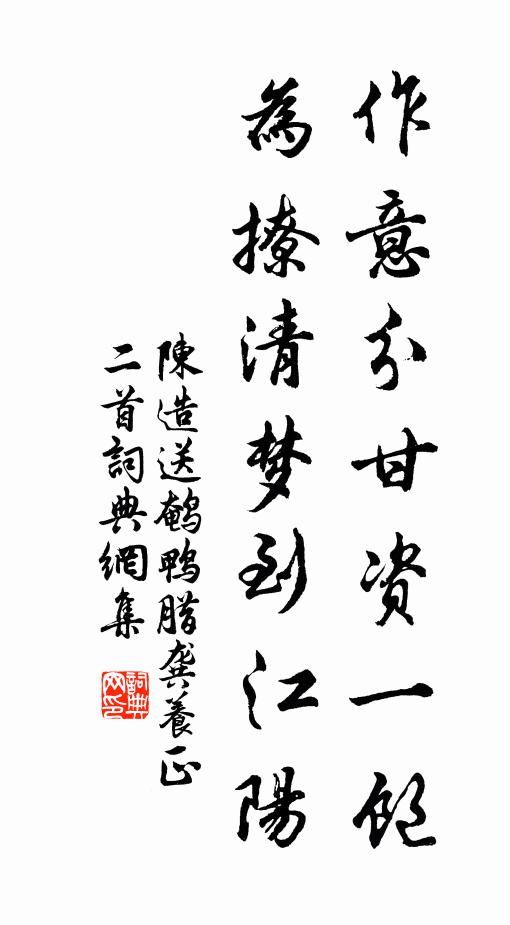 作意分甘资一飽
為撩清梦到江陽
陳造送鵪鴨腊龔養正
二首詞典網集
詞典
网印